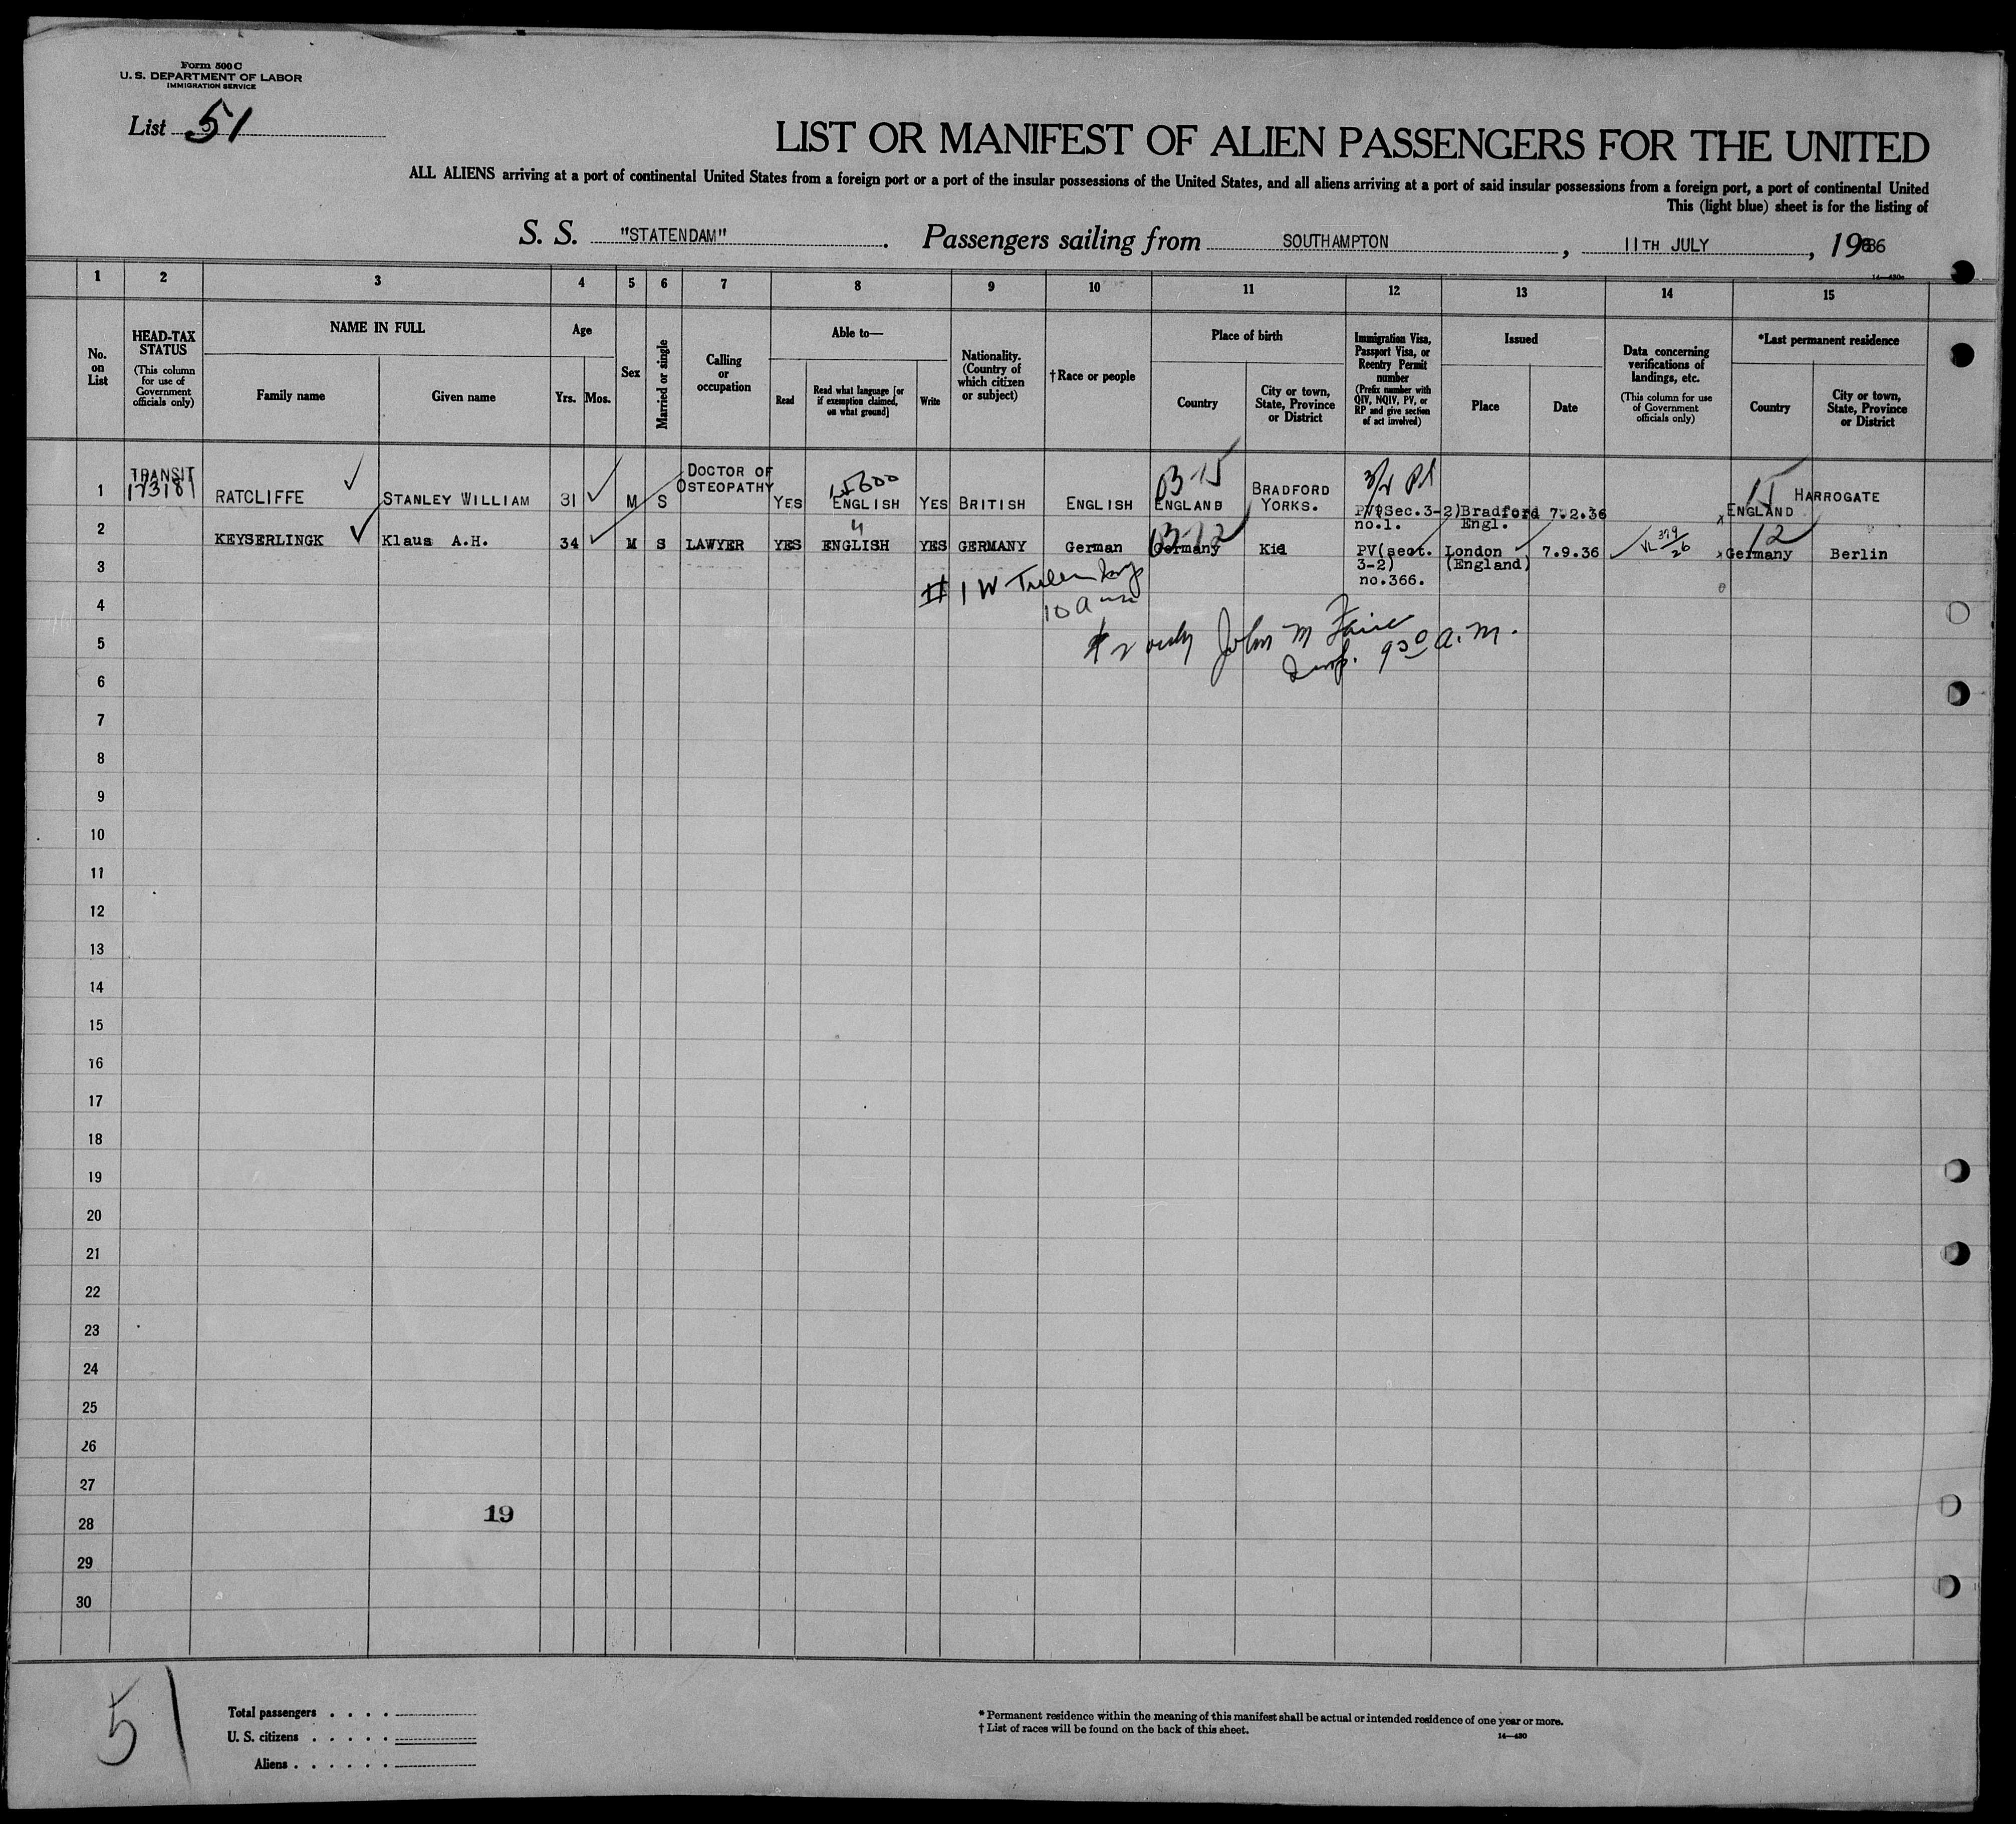 Form 500 C
U. S. DEPARTMENT OF LABOR
IMMIGRATION SERVICE
List 51
LIST OR MANIFEST OF ALIEN PASSENGERS FOR THE UNITED
ALL ALIENS arriving at a port of continental United States from a foreign port or a port of the insular possessions of the United States, and all aliens arriving at a port of said insular possessions from a foreign port, a port of continental United
This (light blue) sheet is for the listing of
S. S. "STATENDAM". Passengers sailing from SOUTHAMPTON, 11TH JULY, 1936
14—430
1 2 3 4 5 6 7 8 9 10 11 12 13 14 15
No. on List
HEAD-TAX STATUS (This column for use of Government officials only)
NAME IN FULL
Family name
Given name
Age
Yrs. Mos.
Sex
Married or single
Calling or occupation
Able to—
Read
Read what language [or if exemption claimed, on what ground]
Write
Nationality. (Country of which citizen or subject)
†Race or people
Place of birth
Country
City or town, State, Province or District
Immigration Visa, Passport Visa, or Reentry Permit number (Prefix number with QIV, NQIV, PV, or RP and give section of act involved)
Issued
Place
Date
Data concerning verifications of landings, etc. (This column for use of Government officials only)
*Last permanent residence
Country
City or town, State, Province or District
1 TRANSIT 173181 RATCLIFFE STANLEY WILLIAM 31 M S DOCTOR OF OSTEOPATHY YES ENGLISH YES BRITISH ENGLISH 03-15 ENGLAND BRADFORD YORKS. (Sec.3-2) no.1. Bradford Engl. 7.2.36 15 ENGLAND HARROGATE
2 KEYSERLINGK Klaus A.H. 34 M S LAWYER YES " ENGLISH YES GERMANY German 03-12 Germany PV(sect. 3-2) no.366. London (England) 7.9.36 VL 379/26 12 Germany Berlin
3
#1 W
4
10 am
5
only John M
930 a.m.
6
7
8
9
10
11
12
13
14
15
16
17
18
19
20
21
22
23
24
25
26
27
28
19
29
30
51
Total passengers . . . .
U. S. citizens . . . . .
Aliens . . . . . .
* Permanent residence within the meaning of this manifest shall be actual or intended residence of one year or more.
† List of races will be found on the back of this sheet.
14—430